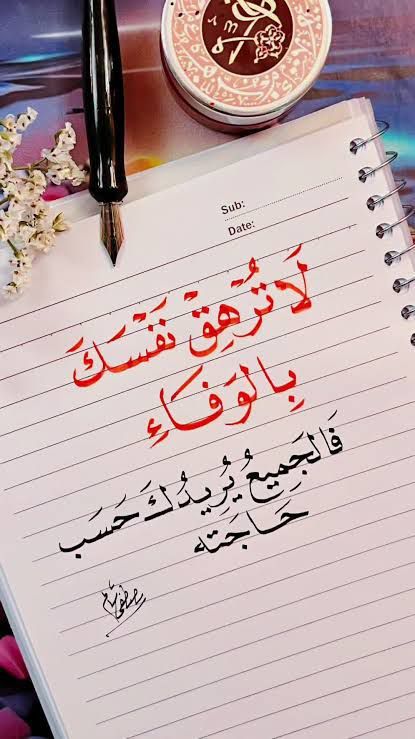 Sub:
Date:
لَا تُرْهِقْ نَفْسَكَ
بِالوَفَاءِ
فَالجَمِيعُ يُرِيدُكَ حَسَب
حَاجَته